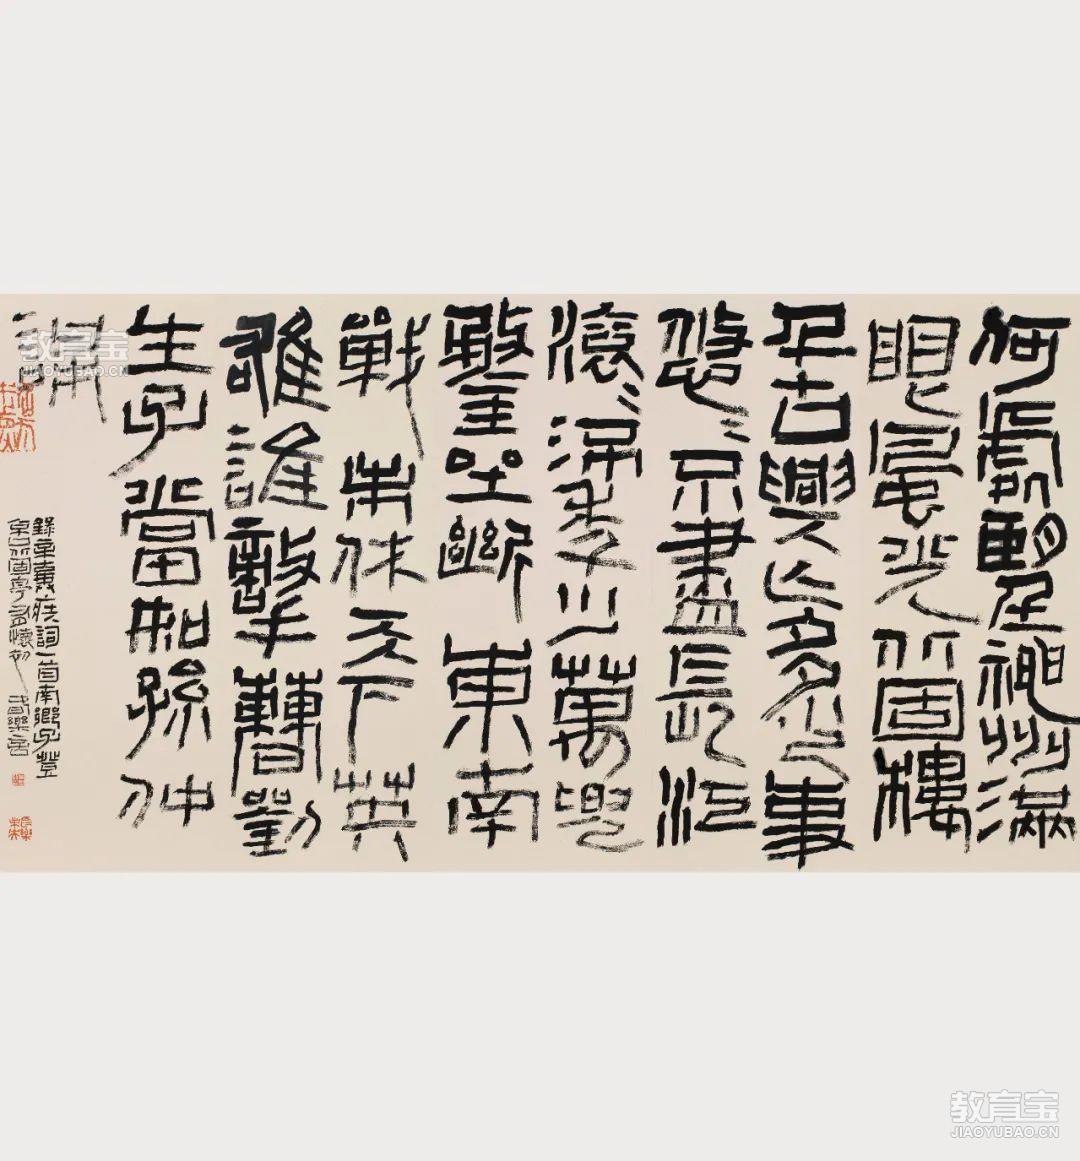 何處望神州滿
眼風光北固樓
千古興亡多少事
悠〻不盡長江
滾〻流年少萬兜
鍪坐斷東南
戰未休天下英
雄誰敵手曹劉
生子當如孫仲
謀
錄辛棄疾詞一首南鄉子登
京口北固亭有懷
教育宝
JIAOYUBAO.CN
教育宝
JIAOYUBAO.CN